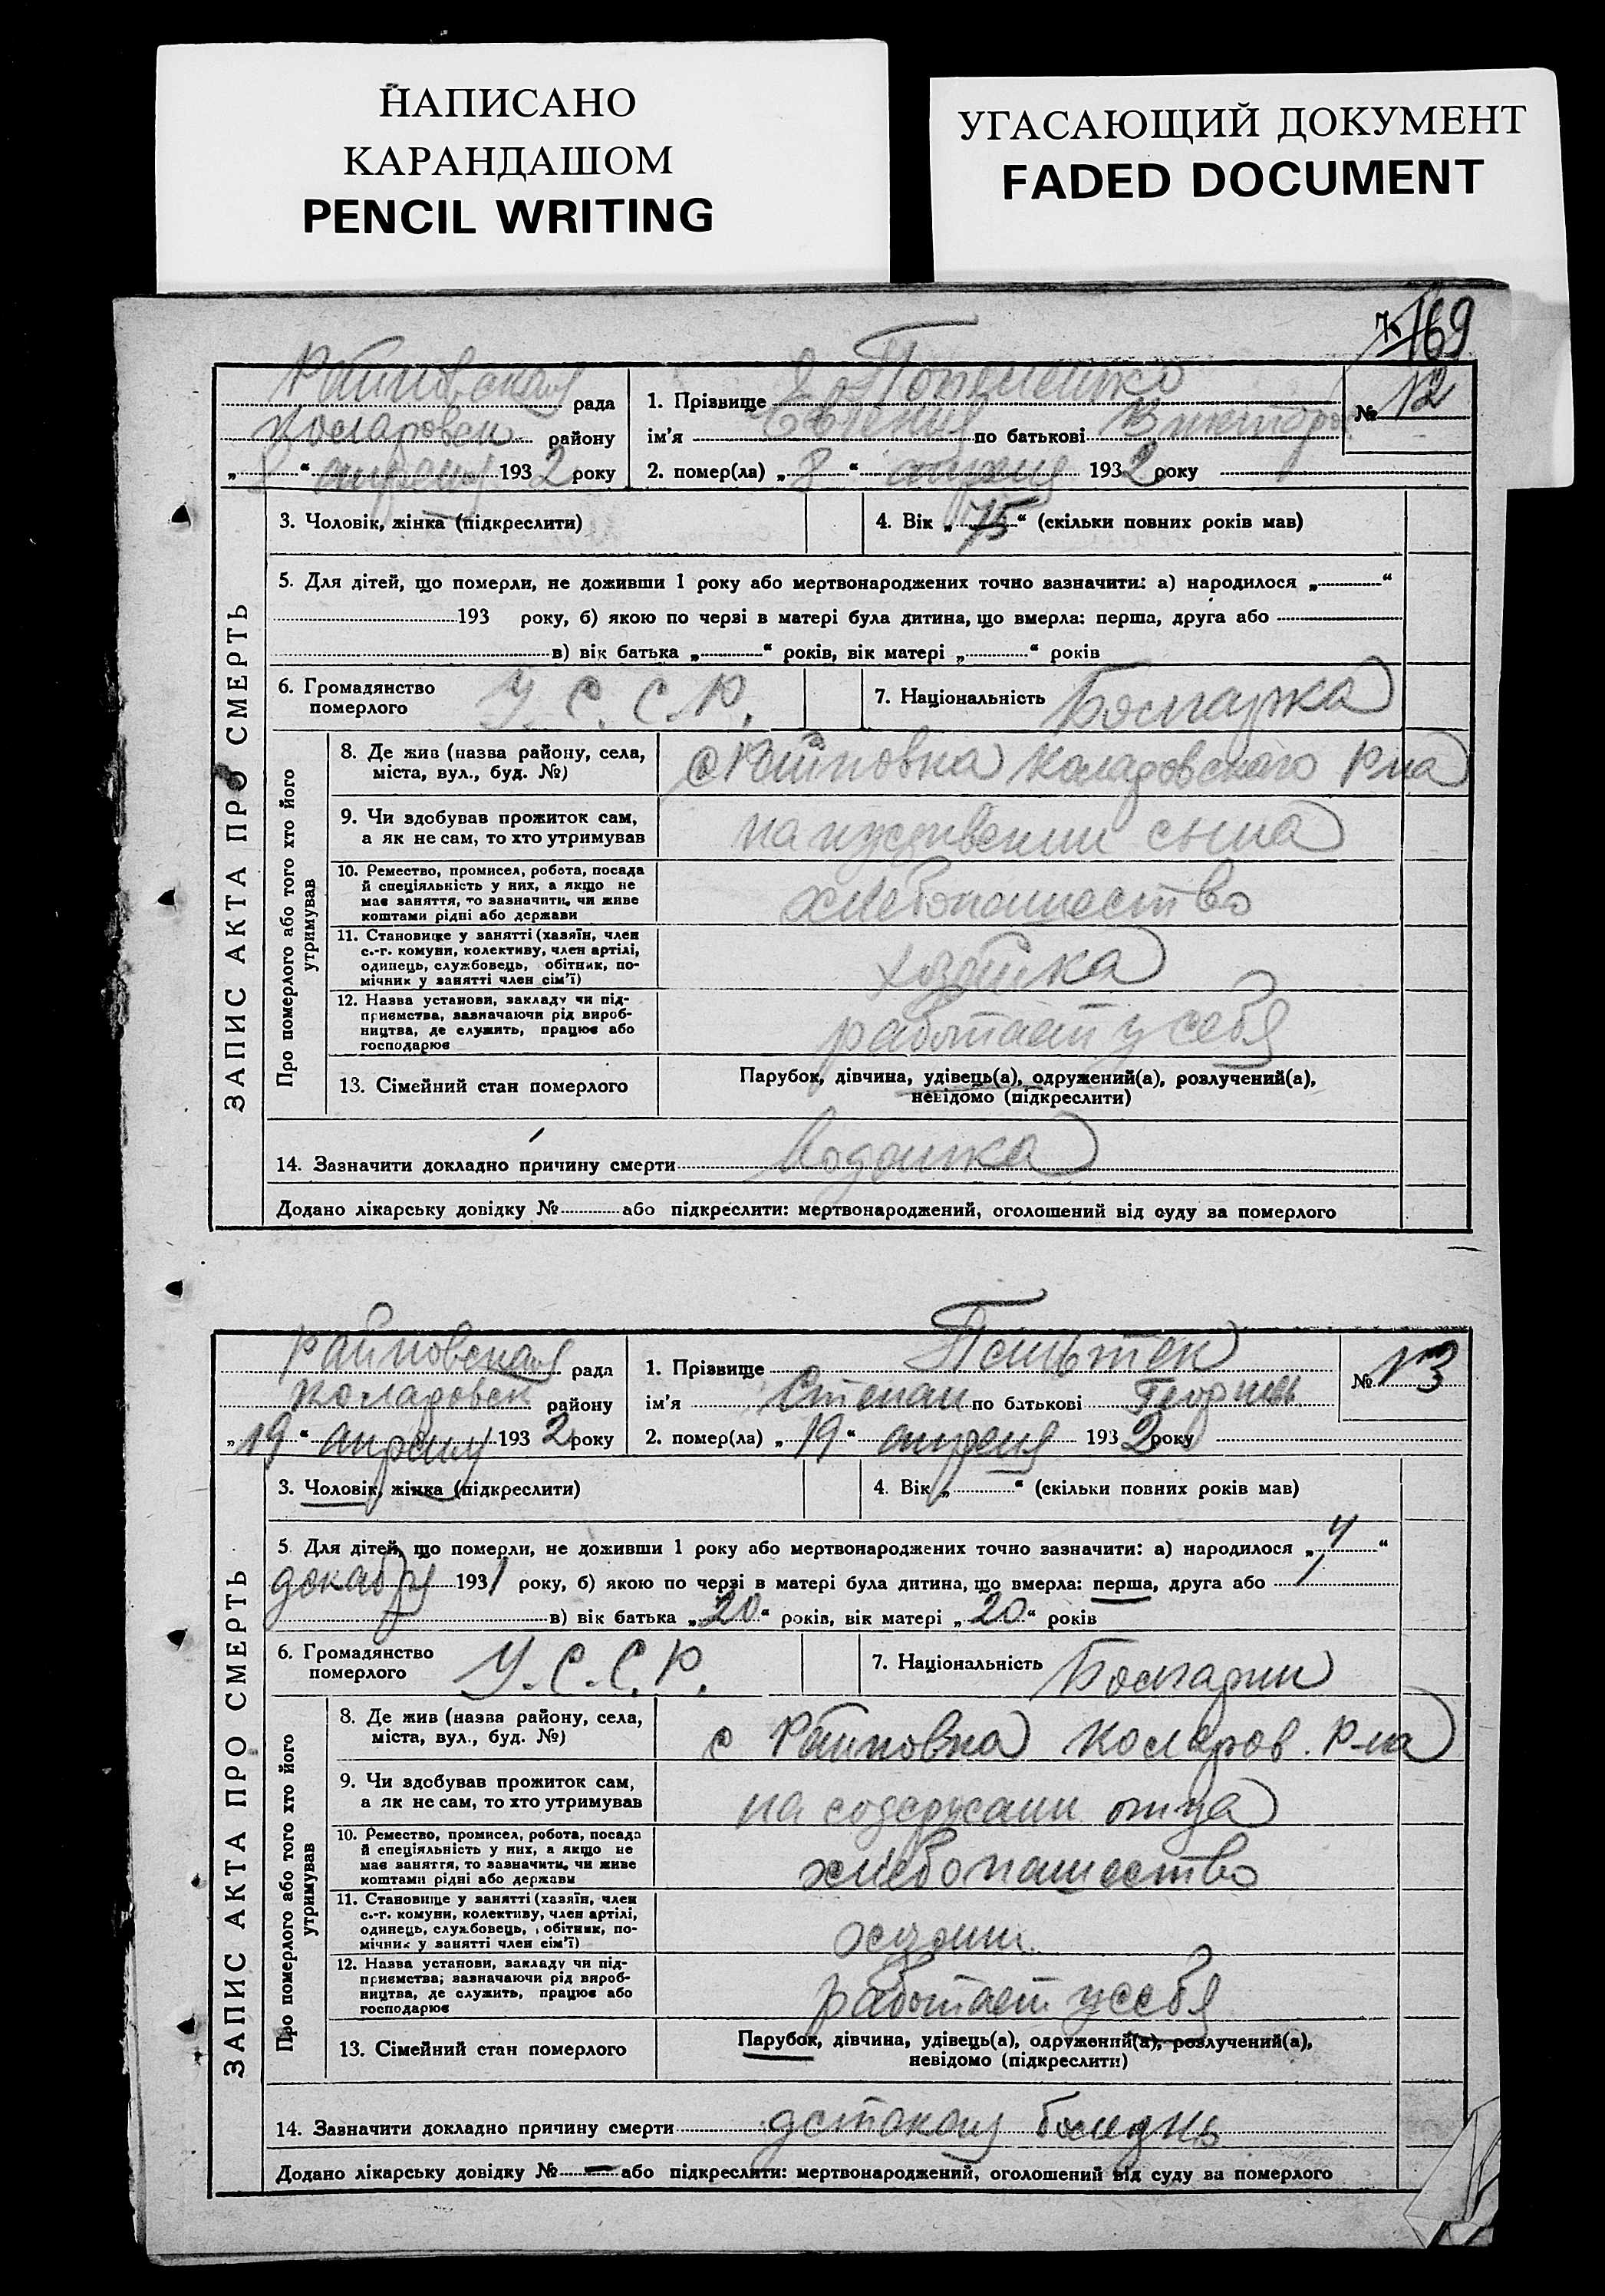 НАПИСАНО
КАРАНДАШОМ
PENCIL WRITING
УГАСАЮЩИЙ ДОКУМЕНТ
FADED DOCUMENT
169
ЗАПИС АКТА ПРО СМЕРТЬ
рада
Коларовск району
„8“ апреля 1932 року
1. Прізвище
ім'я по батькові
№ 12
2. помер(ла) „8“ апреля 1932 року
3. Чоловік, жінка (підкреслити)
4. Вік „75“ (скільки повних років мав)
5. Для дітей, що померли, не доживши 1 року або мертвонароджених точно зазначити: а) народилося „ “
193 року, б) якою по черзі в матері була дитина, що вмерла: перша, друга або
в) вік батька „ “ років, вік матері „ “ років
6. Громадянство
померлого
У. С. С. Р.
7. Національність Болгарка
Про померлого або того хто його
утримував
8. Де жив (назва району, села,
міста, вул., буд. №)
с Райновка Коларовского р-на
9. Чи здобував прожиток сам,
а як не сам, то хто утримував
на сына
10. Ремество, промисел, робота, посада
й спеціяльність у них, а якщо не
має заняття, то зазначити, чи живе
коштами рідні або держави
хлебопашество
11. Становище у занятті (хазяїн, член
с.-г. комуни, колективу, член артілі,
одинець, службовець, обітник, по-
мічник у занятті член сім'ї)
хозяйка
12. Назва установи, закладу чи під-
приємства, зазначаючи рід вироб-
ництва, де служить, працює або
господарює
работает у себя
13. Сімейний стан померлого
Парубок, дівчина, удівець(а), одружений(а), розлучений(а),
невідомо (підкреслити)
14. Зазначити докладно причину смерти
Додано лікарську довідку № або підкреслити: мертвонароджений, оголошений від суду за померлого
ЗАПИС АКТА ПРО СМЕРТЬ
Райновская рада
Коларовск району
„19“ апреля 1932 року
1. Прізвище
ім'я Степан по батькові Георгиев
№ 13
2. помер(ла) „19“ апреля 1932 року
3. Чоловік, жінка (підкреслити)
4. Вік „ “ (скільки повних років мав)
5. Для дітей, що померли, не доживши 1 року або мертвонароджених точно зазначити: а) народилося „4“
декабря 1931 року, б) якою по черзі в матері була дитина, що вмерла: перша, друга або
в) вік батька „20“ років, вік матері „20“ років
6. Громадянство
померлого
У. С. С. Р.
7. Національність Болгарин
Про померлого або того хто його
утримував
8. Де жив (назва району, села,
міста, вул., буд. №)
с Райновка Коларов. р-на
9. Чи здобував прожиток сам,
а як не сам, то хто утримував
на содержани отца
10. Ремество, промисел, робота, посада
й спеціяльність у них, а якщо не
має заняття, то зазначити, чи живе
коштами рідні або держави
хлебопашество
11. Становище у занятті (хазяїн, член
с.-г. комуни, колективу, член артілі,
одинець, службовець, обітник, по-
мічник у занятті член сім'ї)
12. Назва установи, закладу чи під-
приємства; зазначаючи рід вироб-
ництва, де служить, працює або
господарює
работает у себя
13. Сімейний стан померлого
Парубок, дівчина, удівець(а), одружений(а), розлучений(а),
невідомо (підкреслити)
14. Зазначити докладно причину смерти
Додано лікарську довідку № — або підкреслити: мертвонароджений, оголошений від суду за померлого